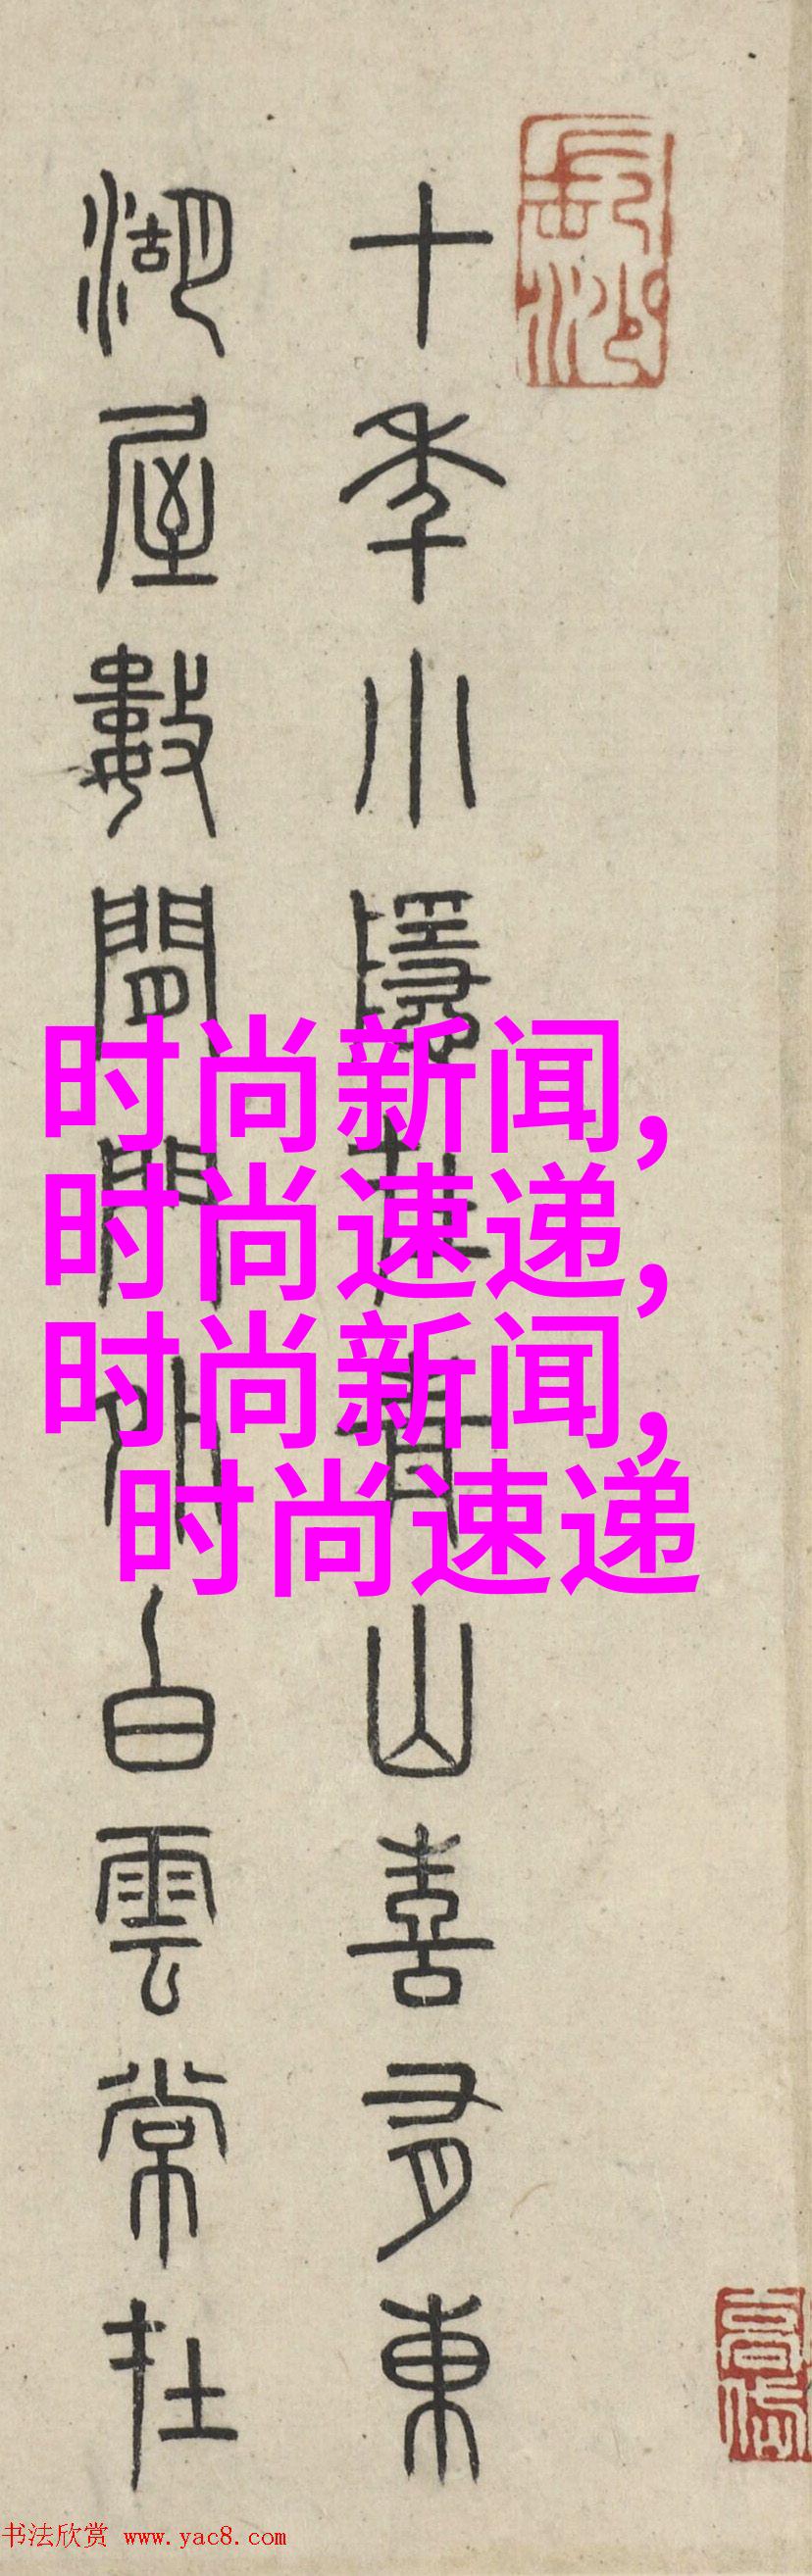 十年小隱在青山喜有東
湖屋數間門外白雲常在
时尚新闻,
时尚速递,
时尚新闻,
时尚速递
书法欣赏 www.yac8.com